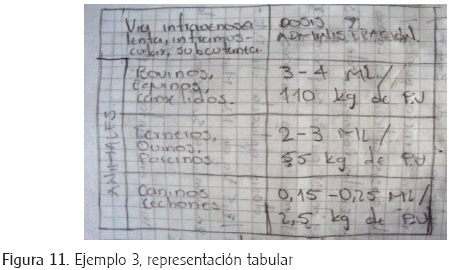 Via intravenosa
lenta, intramus-
cular, subcutanea.
DOSIS Y
ADMINISTRACIÓN.
ANIMALES
Bovinos,
Equinos,
Camelidos.
3-4 ML/
110 kg de P.V
Terneros,
Ovinos,
Porcinos
2-3 ML/
55 kg de P.V
Caninos
Lechones
0,15-0,25 ML/
2,5 kg de P.V
Figura 11. Ejemplo 3, representación tabular